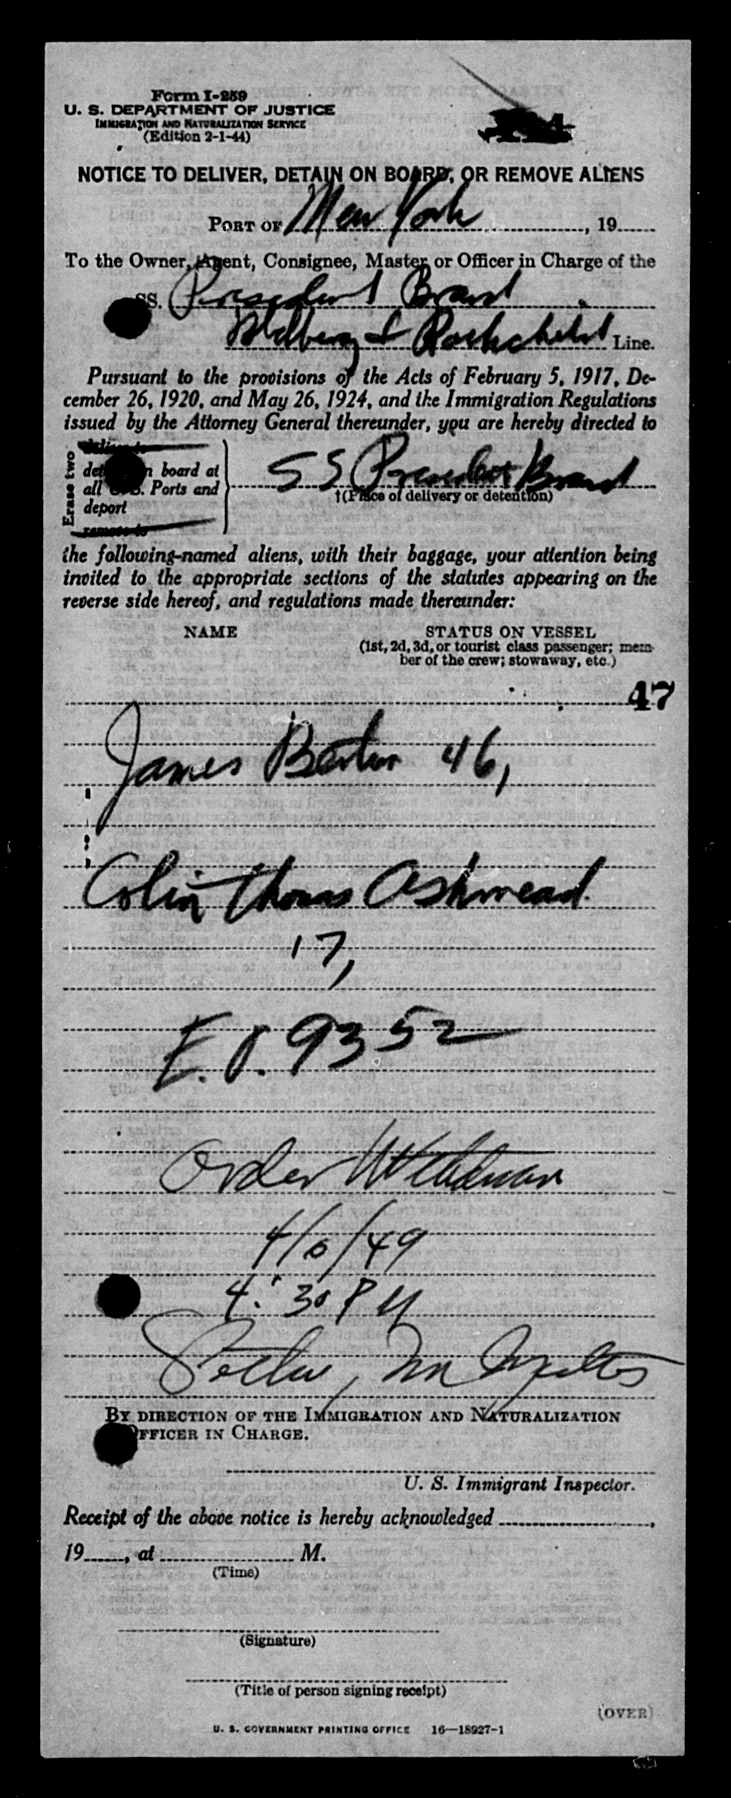 Form I-259
U. S. DEPARTMENT OF JUSTICE
IMMIGRATION AND NATURALIZATION SERVICE
(Edition 2-1-44)
NOTICE TO DELIVER, DETAIN ON BOARD, OR REMOVE ALIENS
PORT OF New York, 19
To the Owner, Agent, Consignee, Master, or Officer in Charge of the
SS. President Brand
& Line.
Pursuant to the provisions of the Acts of February 5, 1917, De-
cember 26, 1920, and May 26, 1924, and the Immigration Regulations
issued by the Attorney General thereunder, you are hereby directed to
Erase two
board at
all Ports and
deport
SS President Brand
†(Place of delivery or detention)
the following-named aliens, with their baggage, your attention being
invited to the appropriate sections of the statutes appearing on the
reverse side hereof, and regulations made thereunder:
NAME STATUS ON VESSEL
(1st, 2d, 3d, or tourist class passenger; mem-
ber of the crew; stowaway, etc.)
47
James 46,
Colin Thomas Ashmead
17,
E.O. 9352
Order
4:30 PM
BY DIRECTION OF THE IMMIGRATION AND NATURALIZATION
OFFICER IN CHARGE.
U. S. Immigrant Inspector.
Receipt of the above notice is hereby acknowledged ,
19 , at M.
(Time)
(Signature)
(Title of person signing receipt)
(OVER)
U. S. GOVERNMENT PRINTING OFFICE 16—18927-1